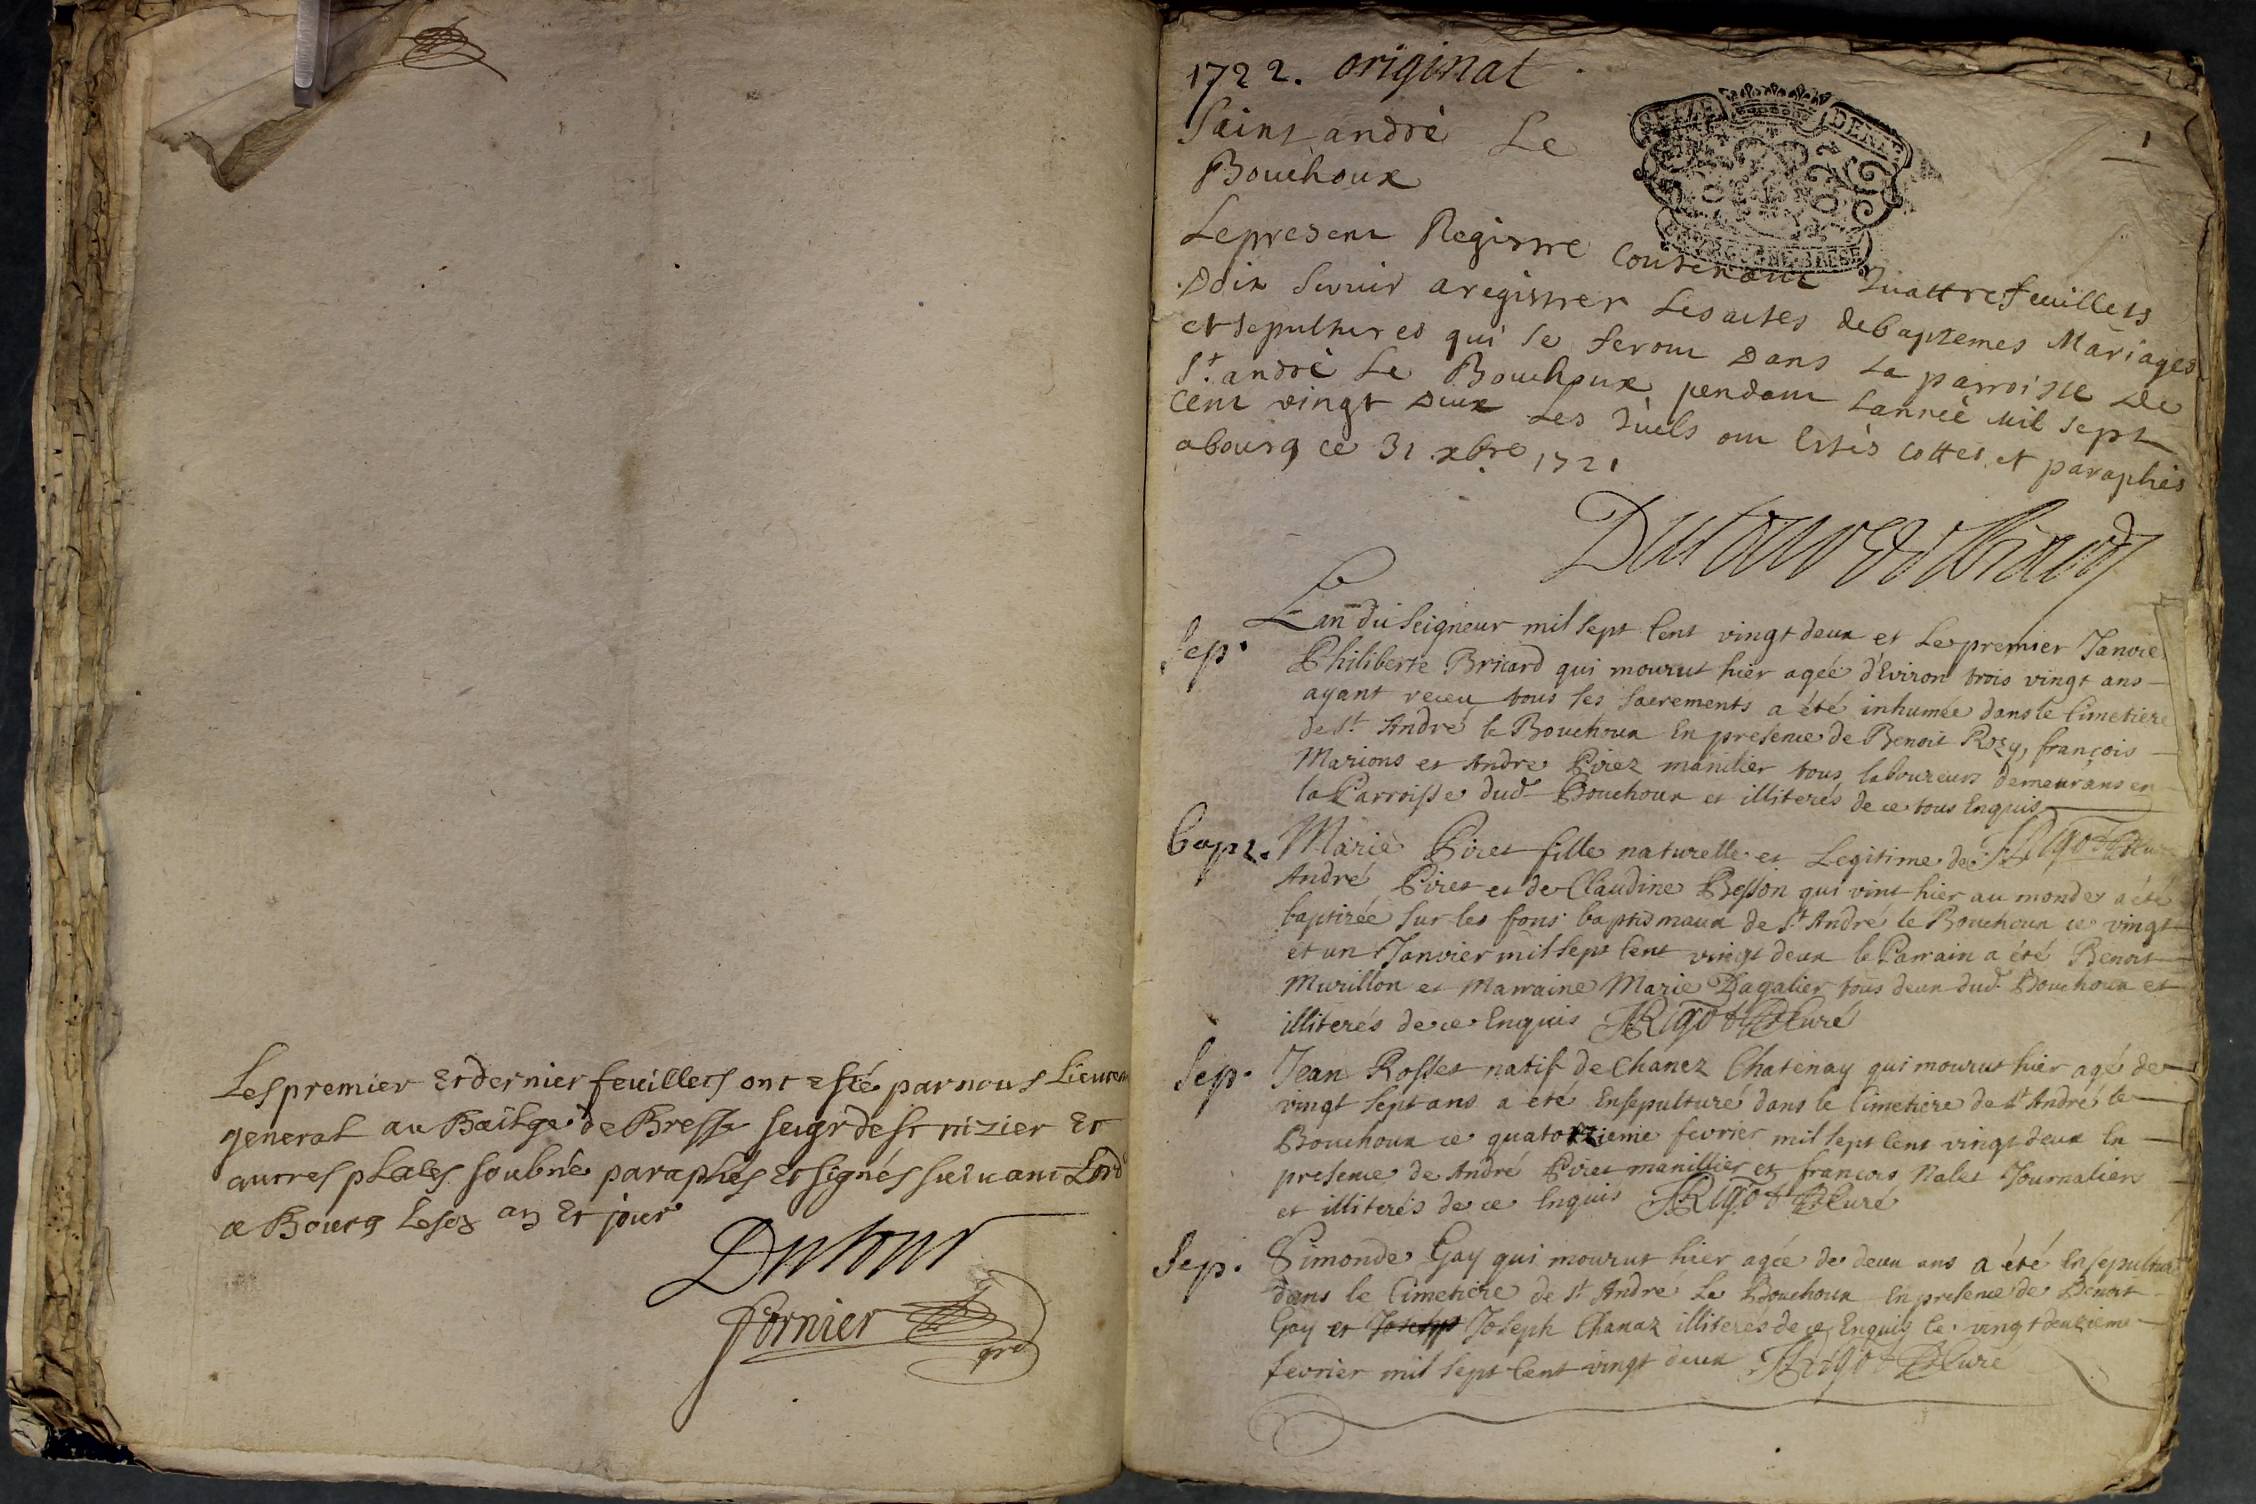 Les premier et dernier feuillets ont esté par nous Lieuten
general au Bailge de Bresse seigr de st nizier et
autres places soubné paraphés et signés suivant Lord
a Bourg Lesd an et jour
Dutour
fornier
1722. original
Saint andrè Le
Bouchoux
1
SEIZE DENI
Le present Registre Contenant quattre feuillets
Doit servir a registrer Les actes de baptemes Mariages
et sepultures qui se feront Dans La parroisse De
St. andrè Le Bouchoux pendant L'année Mil Sept
Cent vingt Deux Les quels ont Estés Cottes et paraphés
a bourg ce 31 xbre 1721
Lan du Seigneur mil sept Cent vingt deux et Le premier Janvie
Sep. Philiberte Bricard qui mourut hier agée d'Eviron trois vingt ans
ayant receu tous ses Sacrements a été inhumée dans le Cimetiere
de St André le Bouchoux En presence de Benoit Rozy, françois
Marions et Andre Pirez manilier tous laboureurs demeurans en
la Parroisse dud Bouchoux et illiterés de ce tous Enquis
Rigot Curé
Bapt. Marie Piret fille naturelle et Legitime de
André Piret et de Claudine Besson qui vint hier au monde a été
baptizée sur les fons baptismaux de St André le Bouchoux ce vingt
et un Janvier mil sept Cent vingt deux le Parrain a été Benoit
Murillon et Marraine Marie Dagalier tous deux dud Bouchoux et
illiterés de ce Enquis Rigot Curé
Sep. Jean Rosset natif de Chanez Chatenay qui mourut hier agé de
vingt sept ans a été Ensepulturé dans le Cimetiere de St André le
Bouchoux ce quatorzieme fevrier mil sept Cent vingt deux En
presence de André Piret manillier et françois Nalet Journaliers
et illiterés de ce Enquis Rigot Curé
Sep. Simonde Gay qui mourut hier agée de deux ans a été Ensepulturé
dans le Cimetiere de St Andre Le Bouchoux En presence de Benoit
Gay et Joseph Joseph Chanaz illiteres de ce Enquis Ce vingt deuzieme
fevrier mil sept Cent vingt deux Rigot Curé